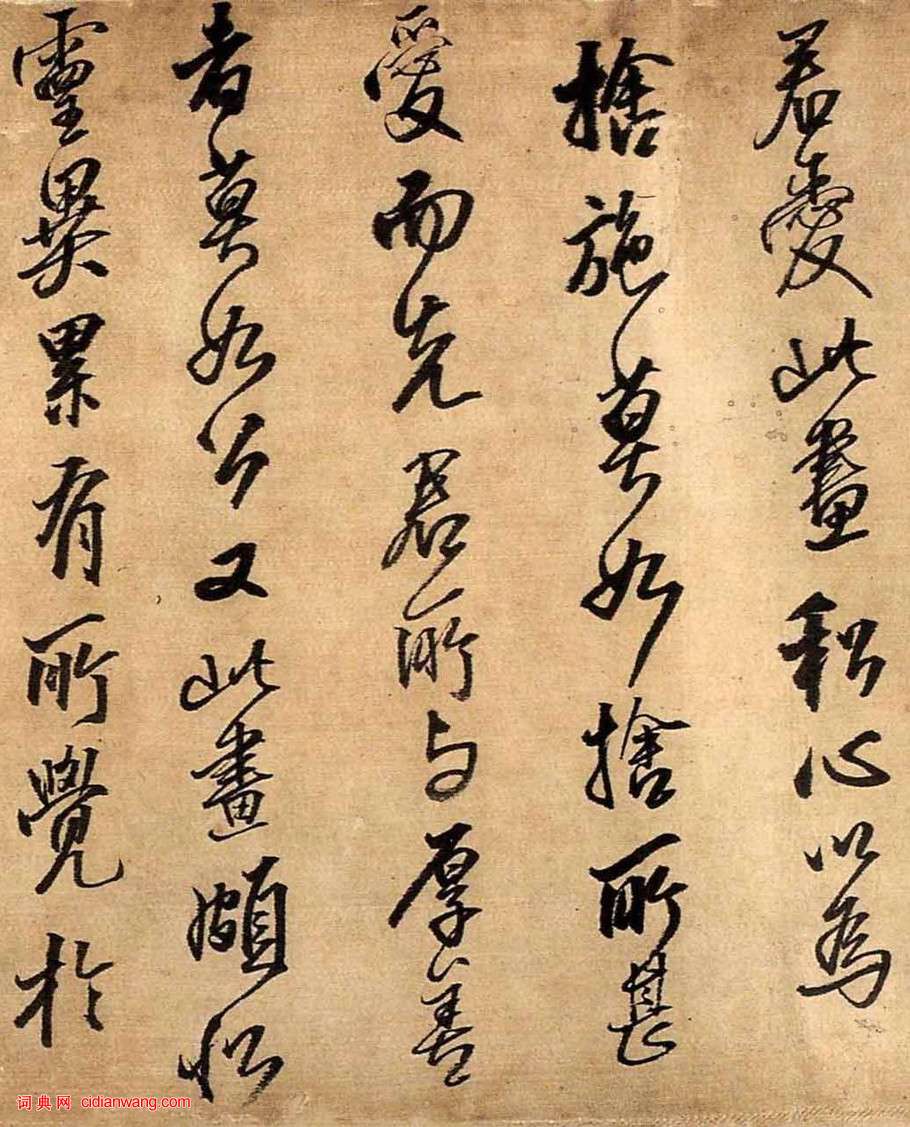 君愛此畫私心以為
捨施莫如捨所甚
愛而先君所与厚善
者莫如公又此畫頗似
靈異累有所覺於
词典网 cidianwang.com